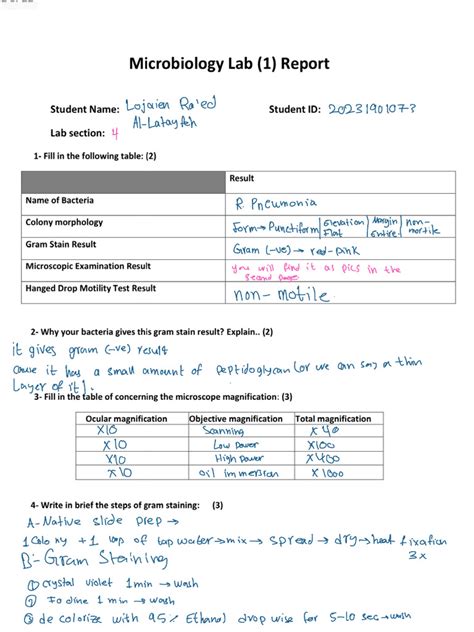 Microbiology Lab (1) Report
Student Name: Lojaien Ra'ed Student ID: 20231901073
Al-Latayfeh
Lab section: 4
1- Fill in the following table: (2)
Result
Name of Bacteria R. Pneumonia
Colony morphology Form→Punctiform | Elevation Flat | Margin Entire | non-motile
Gram Stain Result Gram (-ve) → red-pink
Microscopic Examination Result you will find it as pics in the second page
Hanged Drop Motility Test Result non-motile
2- Why your bacteria gives this gram stain result? Explain.. (2)
it gives gram (-ve) result
cause it has a small amount of peptidoglycan (or we can say a thin
Layer of it).
3- Fill in the table of concerning the microscope magnification: (3)
Ocular magnification Objective magnification Total magnification
X10 Scanning X40
X10 Low power X100
X10 High power X400
X10 oil immersion X1000
4- Write in brief the steps of gram staining: (3)
A-Native slide prep →
1 Colony +1 loop of tap water→mix→ spread→ dry→heat fixation
3x
B- Gram Staining
① crystal violet 1min → wash
② Iodine 1 min → wash
③ decolorize with 95% Ethanol dropwise for 5-10 sec→wash